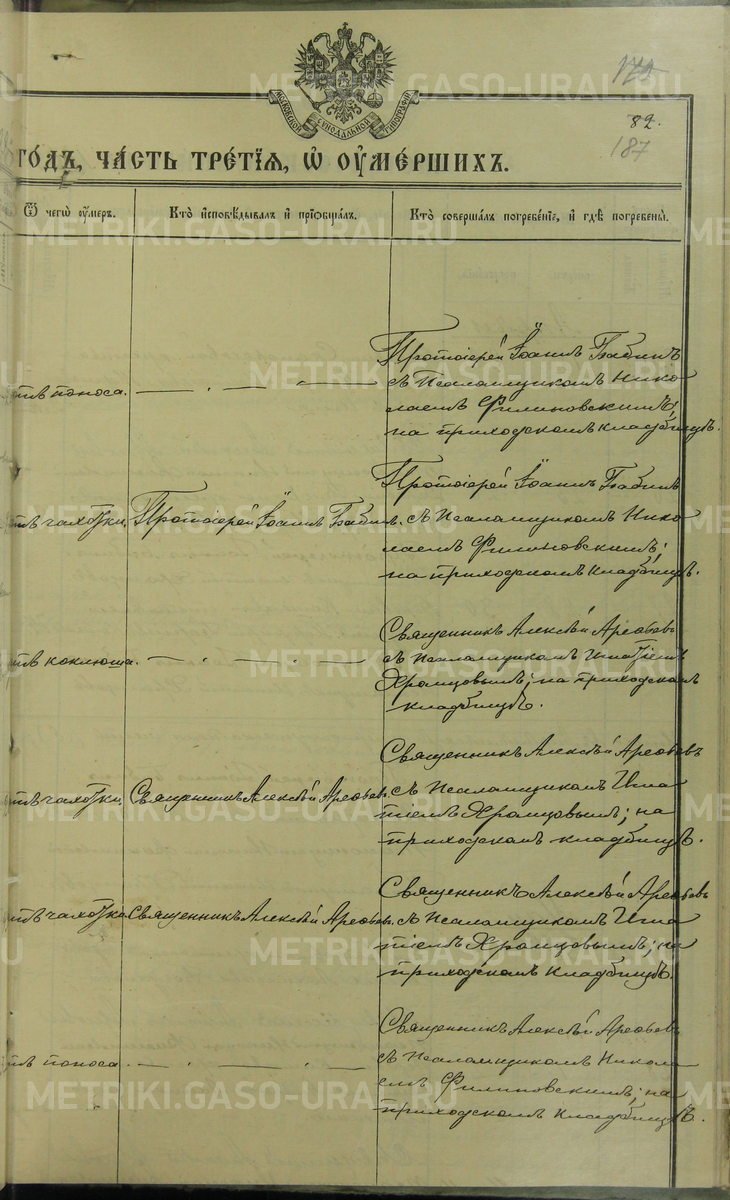 METRIKI.GASO-URAL.RU
172
МОСКОВСКОЙ СѴНОДАЛЬНОЙ ТИПОГРАФІИ
82.
187
ГО́ДЪ, ЧА́СТЬ ТРЕ́ТІЯ, Ѡ ОУМЕ́РШИХЪ.
Ѿ чегѡ̀ оу́меръ.
Кто̀ и҆сповѣ́дывалъ и҆ прїѡбща́лъ.
Кто̀ соверша́лъ погребе́нїе, и҆ гдѣ̀ погребены̀.
отъ поноса.
Протоіерей Іоаннъ Бабинъ
съ Псаломщикомъ Нико
лаемъ Филиновскимъ;
на приходскомъ кладбищѣ.
отъ чахотки.
Протоіерей Іоаннъ Бабинъ.
Протоіерей Іоаннъ Бабинъ
съ Псаломщикомъ Нико
лаемъ Филиновскимъ;
на приходскомъ кладбищѣ.
отъ коклюша.
Священникъ Алексѣй Арефьевъ
съ псаломщикомъ Игнатіемъ
Храмцовымъ; на приходскомъ
кладбищѣ.
отъ чахотки.
Священникъ Алексѣй Арефьевъ.
Священникъ Алексѣй Арефьевъ
съ Псаломщикомъ Игна
тіемъ Храмцовымъ; на
приходскомъ кладбищѣ.
отъ чахотки
Священникъ Алексѣй Арефьевъ.
Священникъ Алексѣй Арефьевъ
съ Псаломщикомъ Игна
тіемъ Храмцовымъ; на
приходскомъ кладбищѣ.
отъ поноса.
Священникъ Алексѣй Арефьевъ
съ Псаломщикомъ Никола
емъ Филиновскимъ; на
приходскомъ кладбищѣ.